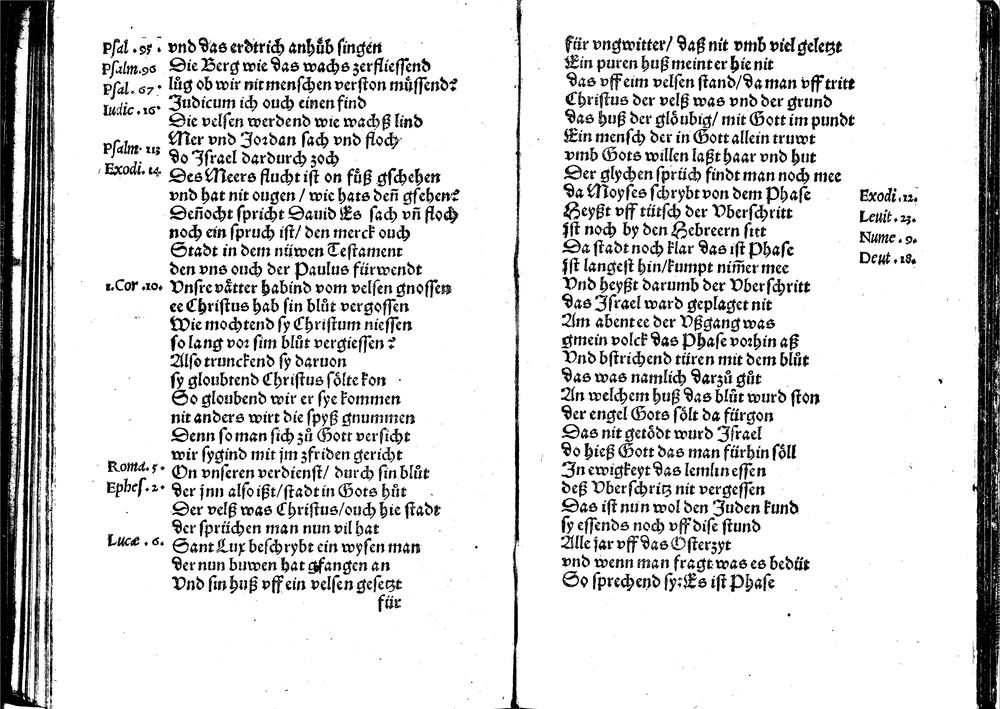 Psal. 95. vnd das erdtrich anhůb singen
Psalm. 96 Die Berg wie das wachs zerfliessend
Psal. 67. lůg ob wir nit menschen verston müssend?
Iudic. 16 Judicum ich ouch einen find
Die velsen werdend wie wachß lind
Mer vnd Jordan sach vnd floch
Psalm. 113 do Israel dardurch zoch
Exodi. 14. Des Meers flucht ist on fůß gschehen
vnd hat nit ougen / wie hats deñ gsehen?
Deñocht spricht Dauid Es sach vñ floch
noch ein spruch ist / den merck ouch
Stadt in dem nüwen Testament
den vns ouch der Paulus fürwendt
1. Cor. 10. Vnsre våtter habind vom velsen gnossen
ee Christus hab sin blůt vergossen
Wie mochtend sy Christum niessen
so lang vor sim blůt vergiessen?
Also trunckend sy daruon
sy gloubtend Christus sölte kon
So gloubend wir er sye kommen
nit anders wirt die spyß gnummen
Denn so man sich zů Gott versicht
wir sygind mit jm zfriden gericht
Roma. 5. On vnseren verdienst / durch sin blůt
Ephes. 2. der jnn also ißt / stadt in Gots hůt
Der velß was Christus / ouch hie stadt
der sprüchen man nun vil hat
Lucæ. 6. Sant Lux beschrybt ein wysen man
der nun buwen hat gfangen an
Vnd sin huß vff ein velsen gesetzt
für
für vngwitter / daß nit vmb viel geletzt
Ein puren huß meint er hie nit
das vff eim velsen stand / da man vff tritt
Christus der velß was vnd der grund
das huß der glöubig / mit Gott im pundt
Ein mensch der in Gott allein truwt
vmb Gots willen laßt haar vnd hut
Der glychen sprüch findt man noch mee
da Moyses schrybt von dem Phase Exodi. 12.
Heyßt vff tütsch der Vberschritt Leuit. 23.
ist noch by den Hebreern sitt Nume. 9.
Da stadt noch klar das ist Phase Deut. 18.
ist langest hin / kumpt nim̃er mee
Vnd heyßt darumb der Vberschritt
das Israel ward geplaget nit
Am abent ee der Vßgang was
gmein volck das Phase vorhin aß
Vnd bstrichend türen mit dem blůt
das was namlich darzů gůt
An welchem huß das blůt wurd ston
der engel Gots sölt da fürgon
Das nit getödt wurd Israel
do hieß Gott das man fürhin söll
In ewigkeyt das lemlin essen
deß Vberschritz nit vergessen
Das ist nun wol den Juden kund
sy essends noch vff dise stund
Alle jar vff das Osterzyt
vnd wenn man fragt was es bedüt
So sprechend sy: Es ist Phase